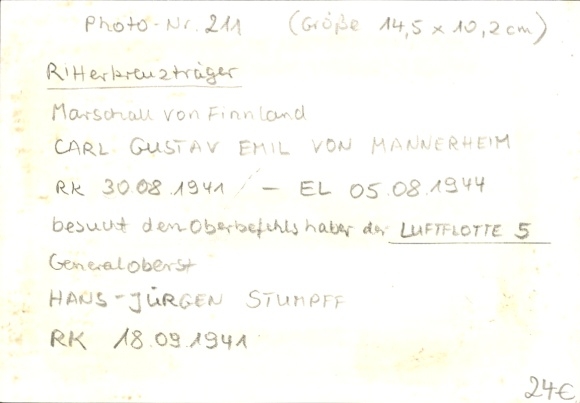 Photo-Nr. 211 (Größe 14,5 x 10,2cm)
Ritterkreuzträger
Marschall von Finnland
CARL GUSTAV EMIL VON MANNERHEIM
RK 30.08.1941 - EL 05.08.1944
besucht den Oberbefehlshaber der LUFTFLOTTE 5
Generaloberst
HANS-JÜRGEN STUMPFF
RK 18.09.1941
24€